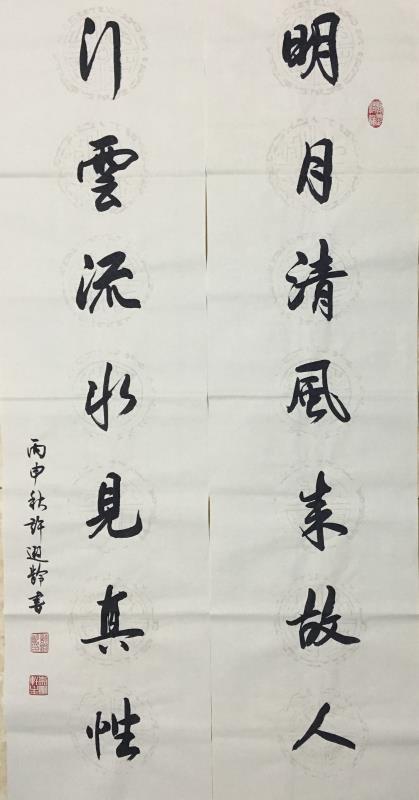 明月清風來故人
行雲流水見真性
丙申秋許遐齡書